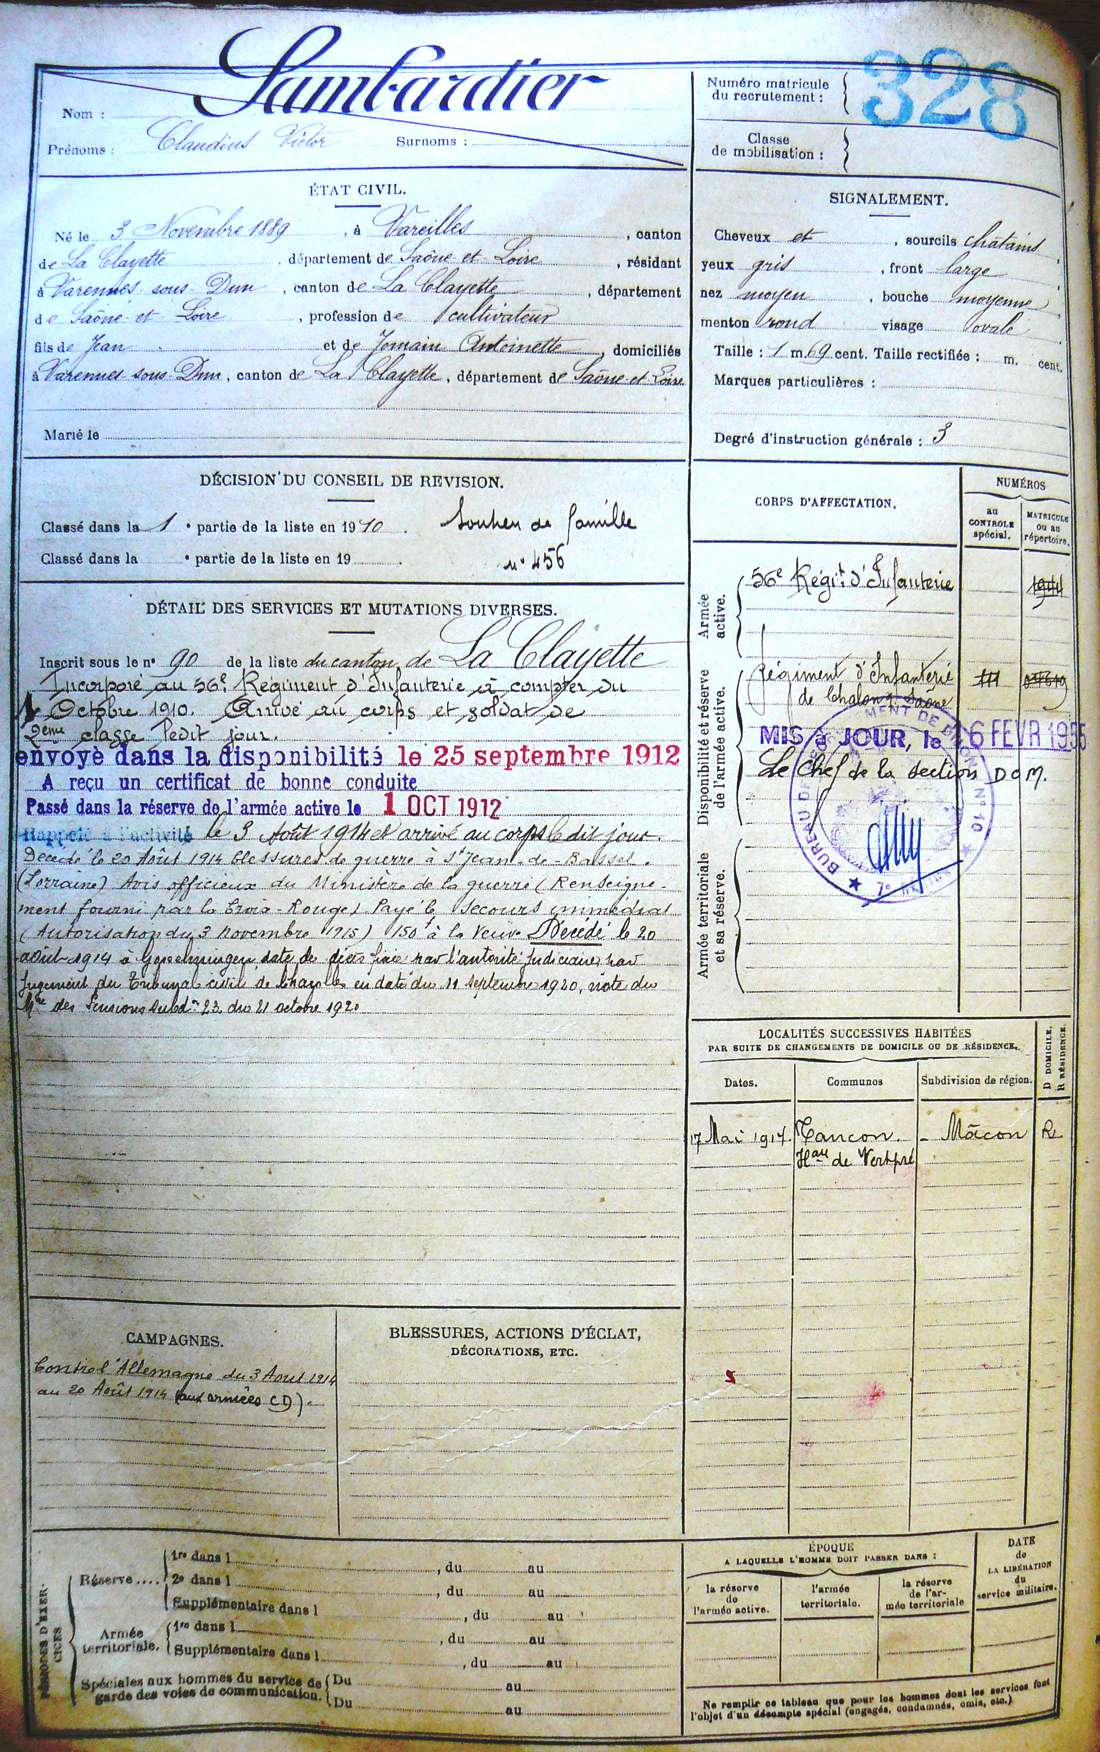 Nom : Lambardier
Prénoms : Claudius Victor Surnoms :
Numéro matricule
du recrutement : 328
Classe
de mobilisation :
ÉTAT CIVIL.
Né le 3 Novembre 1889, à Vareilles, canton
de La Clayette, département de Saône et Loire, résidant
à Varennes sous Dun, canton de La Clayette, département
de Saône et Loire, profession de cultivateur
fils de Jean et de Jomain Antoinette, domiciliés
à Varennes sous Dun, canton de La Clayette, département de Saône et Loire
Marié le
SIGNALEMENT.
Cheveux et, sourcils chatains
yeux gris, front large
nez moyen, bouche moyenne
menton rond visage ovale
Taille : 1 m. 69 cent. Taille rectifiée : m. cent.
Marques particulières :
Degré d'instruction générale : 3
DÉCISION DU CONSEIL DE REVISION.
Classé dans la 1e partie de la liste en 1910. Soutien de famille
Classé dans la e partie de la liste en 19 n° 456
DÉTAIL DES SERVICES ET MUTATIONS DIVERSES.
Inscrit sous le n° 90 de la liste du canton de La Clayette
Incorporé au 56e Régiment d'Infanterie à compter du
Octobre 1910. Arrivé au corps et soldat de
2ème classe ledit jour.
envoyé dans la disponibilité le 25 septembre 1912
A reçu un certificat de bonne conduite
Passé dans la réserve de l'armée active le 1 OCT 1912
Rappelé à l'activité le 3 Août 1914 et arrivé au corps le dit jour.
Décédé le 20 Août 1914 blessures de guerre à St Jean-de-Bassel.
(Lorraine) Avis officieux du Ministère de la guerre (Renseigne-
ment fourni par la Croix-Rouge) Payé le secours immédiat
(Autorisation du 3 novembre 1915) 150f à la Veuve Décédé le 20
août 1914 à Gosselmingen, date de décès fixée par l'autorité judiciaire, par
jugement du Tribunal civil de Charolles en date du 11 septembre 1920, note du
Mre des Pensions 23 du 21 octobre 1920
CORPS D'AFFECTATION.
NUMÉROS
au
CONTROLE
spécial.
MATRICULE
ou au
répertoire.
Armée
active.
56e Régit d'Infanterie
Disponibilité et réserve
de l'armée active.
Régiment d'Infanterie
de Chalon s. Saône
MIS à JOUR, le 6 FEVR 1955
Le Chef de la Section D O M.
Armée territoriale
et sa réserve.
LOCALITÉS SUCCESSIVES HABITÉES
PAR SUITE DE CHANGEMENTS DE DOMICILE OU DE RÉSIDENCE.
D DOMICILE.
R RÉSIDENCE.
Dates. Communes Subdivision de région.
17 Mai 1914 Tancon. - Mâcon R.
Hau de Vertpré
CAMPAGNES.
Contre l'Allemagne du 3 Août 1914
au 20 Août 1914 (aux armées CD).
BLESSURES, ACTIONS D'ÉCLAT,
DÉCORATIONS, ETC.
PÉRIODES D'EXER-
CICES
Réserve....
1re dans l , du au
2e dans l , du au
Supplémentaire dans l , du au
Armée
territoriale.
1re dans l , du au
Supplémentaire dans l , du au
Spéciales aux hommes du service de
garde des voies de communication.
Du au
Du au
ÉPOQUE
A LAQUELLE L'HOMME DOIT PASSER DANS :
la réserve
de
l'armée active.
l'armée
territoriale.
la réserve
de l'ar-
mée territoriale
DATE
de
LA LIBÉRATION
du
service militaire.
Ne remplir ce tableau que pour les hommes dont les services font
l'objet d'un décompte spécial (engagés, condamnés, omis, etc.)